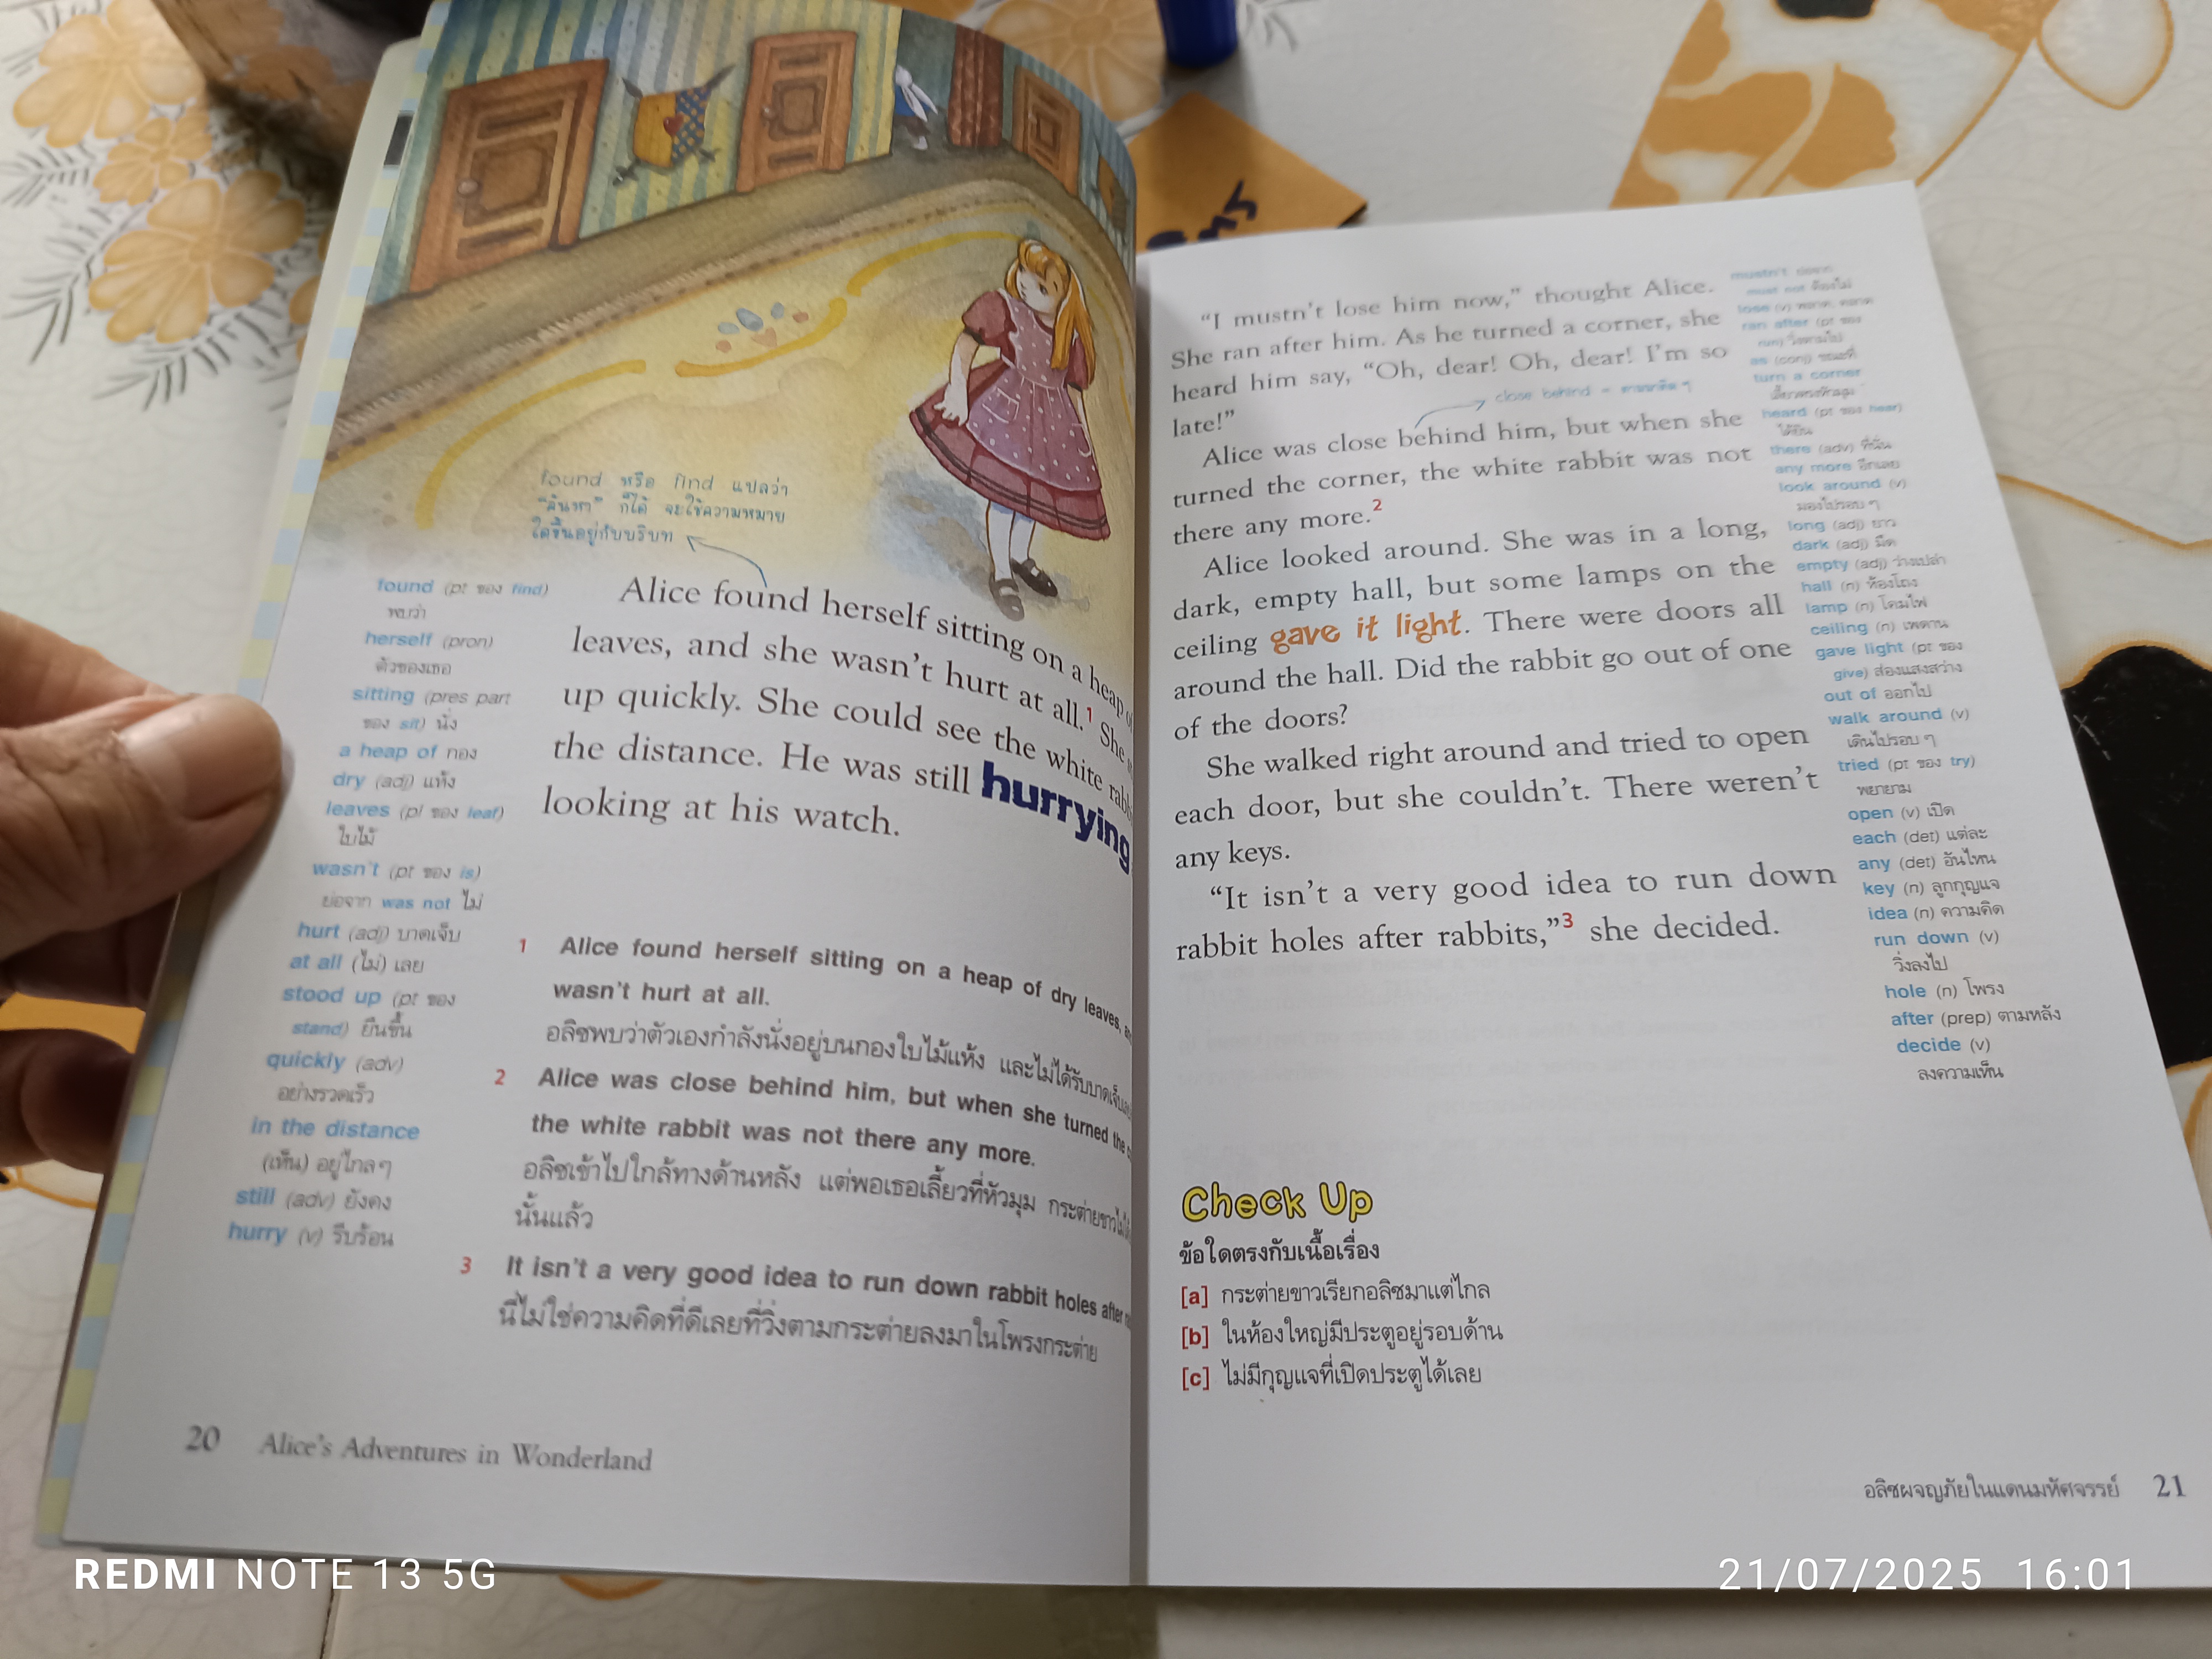 found หรือ find แปลว่า
"ค้นหา" ก็ได้ จะใช้ความหมาย
ใดขึ้นอยู่กับบริบท
found (pt ของ find)
พบว่า
herself (pron)
ตัวของเธอ
sitting (pres part
ของ sit) นั่ง
a heap of กอง
dry (adj) แห้ง
leaves (pl ของ leaf)
ใบไม้
wasn't (pt ของ is)
ย่อจาก was not ไม่
hurt (adj) บาดเจ็บ
at all (ไม่) เลย
stood up (pt ของ
stand) ยืนขึ้น
quickly (adv)
อย่างรวดเร็ว
in the distance
(เห็น) อยู่ไกลๆ
still (adv) ยังคง
hurry (v) รีบร้อน
Alice found herself sitting on a heap of
leaves, and she wasn't hurt at all.1 She
up quickly. She could see the white
the distance. He was still hurrying
looking at his watch.
1 Alice found herself sitting on a heap of dry leaves,
wasn't hurt at all.
อลิซพบว่าตัวเองกำลังนั่งอยู่บนกองใบไม้แห้ง และไม่ได้รับบาดเจ็บ
2 Alice was close behind him, but when she turned the
the white rabbit was not there any more.
อลิซเข้าไปใกล้ทางด้านหลัง แต่พอเธอเลี้ยวที่หัวมุม กระต่ายขาว
นั้นแล้ว
3 It isn't a very good idea to run down rabbit holes after
นี่ไม่ใช่ความคิดที่ดีเลยที่วิ่งตามกระต่ายลงมาในโพรงกระต่าย
20 Alice's Adventures in Wonderland
"I mustn't lose him now," thought Alice.
She ran after him. As he turned a corner, she
heard him say, "Oh, dear! Oh, dear! I'm so
late!"
close behind = ตามติด ๆ
Alice was close behind him, but when she
turned the corner, the white rabbit was not
there any more.2
Alice looked around. She was in a long,
dark, empty hall, but some lamps on the
ceiling gave it light. There were doors all
around the hall. Did the rabbit go out of one
of the doors?
She walked right around and tried to open
each door, but she couldn't. There weren't
any keys.
"It isn't a very good idea to run down
rabbit holes after rabbits,"3 she decided.
mustn't
must not ต้องไม่
lose (v)
ran after (pt ของ
run) วิ่งตามไป
as (conj) ขณะที่
turn a corner
heard (pt ของ hear)
ได้ยิน
there (adv) ที่นั่น
any more อีกเลย
look around (v)
มองไปรอบ ๆ
long (adj) ยาว
dark (adj) มืด
empty (adj) ว่างเปล่า
hall (n) ห้องโถง
lamp (n) โคมไฟ
ceiling (n) เพดาน
gave light (pt ของ
give) ส่องแสงสว่าง
out of ออกไป
walk around (v)
เดินไปรอบ ๆ
tried (pt ของ try)
พยายาม
open (v) เปิด
each (det) แต่ละ
any (det) อันไหน
key (n) ลูกกุญแจ
idea (n) ความคิด
run down (v)
วิ่งลงไป
hole (n) โพรง
after (prep) ตามหลัง
decide (v)
ลงความเห็น
Check Up
ข้อใดตรงกับเนื้อเรื่อง
[a] กระต่ายขาวเรียกอลิซมาแต่ไกล
[b] ในห้องใหญ่มีประตูอยู่รอบด้าน
[c] ไม่มีกุญแจที่เปิดประตูได้เลย
อลิซผจญภัยในแดนมหัศจรรย์ 21
REDMI NOTE 13 5G
21/07/2025 16:01